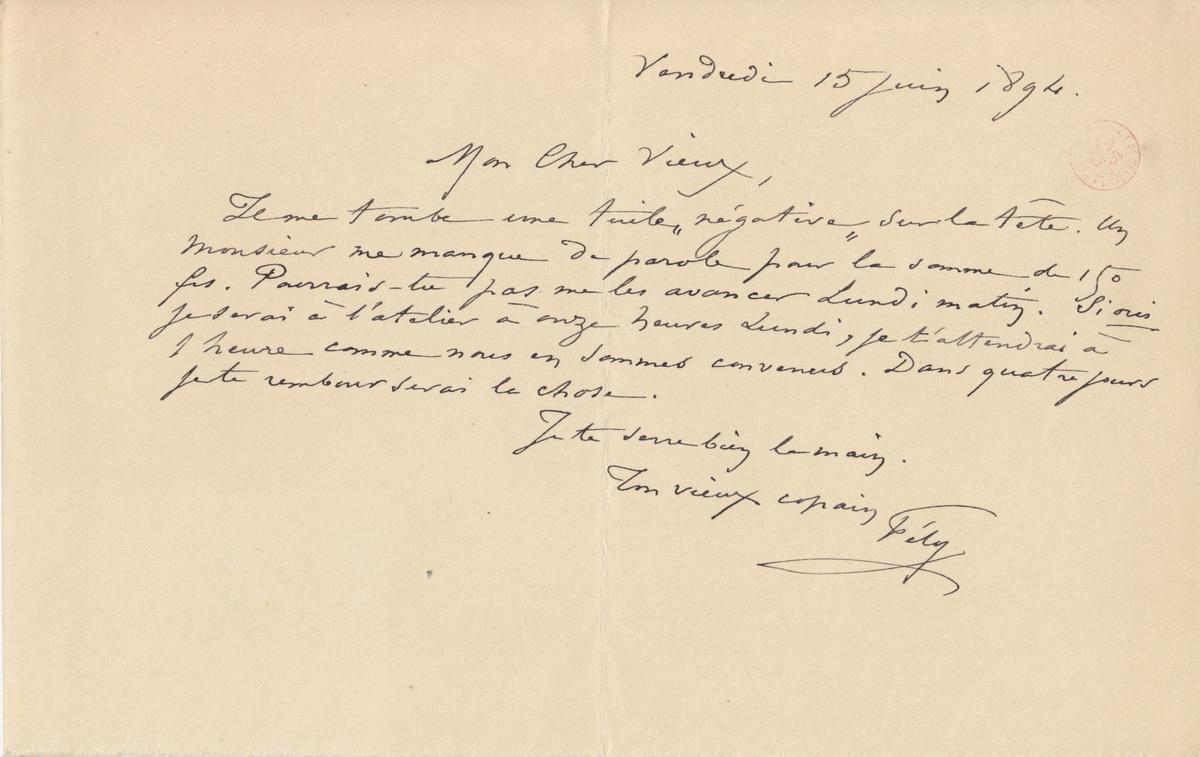 Vendredi 15 juin 1894.
Mon Cher Vieux,
Il me tombe une tuile „négative„ sur la tête. Un
monsieur me manque de parole pour la somme de 150
fcs. Pourrais-tu pas me les avancer Lundi matin. Si oui
je serai à l'atelier à onze heures Lundi, je t'attendrai à
1 heure comme nous en sommes convenus. Dans quatre jours
je te rembourserai la chose.
Je te serre bien la main.
Ton vieux copain
Fély